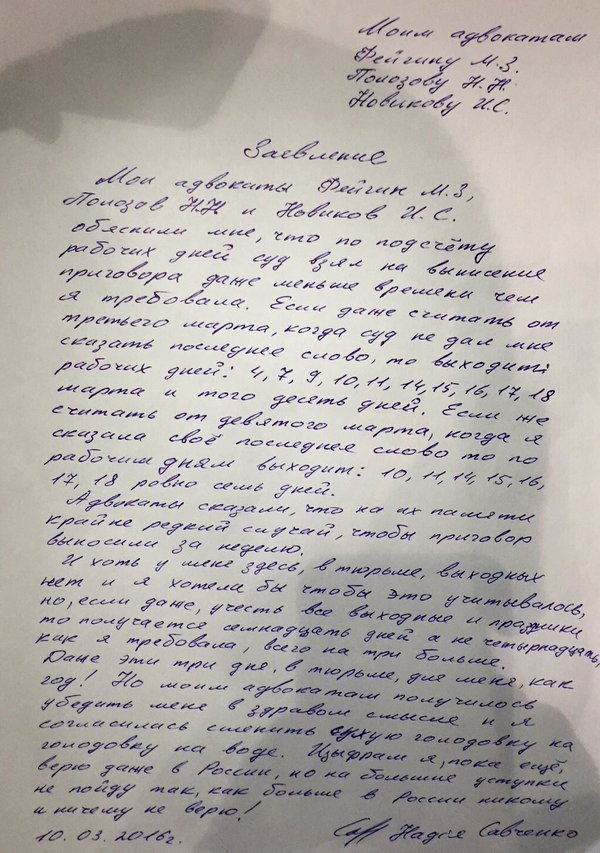 Моим адвокатам
Фейгину М.З.
Полозову Н.Н.
Новикову И.С.
Заявление
Мои адвокаты Фейгин М.З,
Полозов Н.Н и Новиков И.С.
обяснили мне, что по подсчёту
рабочих дней суд взял на вынисение
приговора даже меньше времени чем
я требовала. Если даже считать от
третьего марта, когда суд не дал мне
сказать последнее слово, то выходит:
рабочих дней: 4, 7, 9, 10, 11, 14, 15, 16, 17, 18
марта и того десять дней. Если же
считать от девятого марта, когда я
сказала своё последнее слово то по
рабочим дням выходит: 10, 11, 14, 15, 16,
17, 18 ровно семь дней.
Адвокаты сказали, что на их памяти
крайне редкий случай, чтобы приговор
выносили за неделю.
И хоть у мене здесь, в тюрьме, выходных
нет и я хотела бы чтобы это учитывалось,
но, если даже, учесть все выходные и празники
то получается семнадцать дней а не четырнадцать,
как я требовала, всего на три больше.
Даше эти три дня, в тюрьме, для меня, как
год! Но моим адвокатам получилось
убедить мене в здравом смысле и я
согласилась сменить сухую голодовку на
голодовку на воде. Цыфрам я, пока ещё,
верю даже в России, но на большие уступки
не пойду так, как больше в России никому
и ничему не верю!
10.03.2016г. Надія Савченко